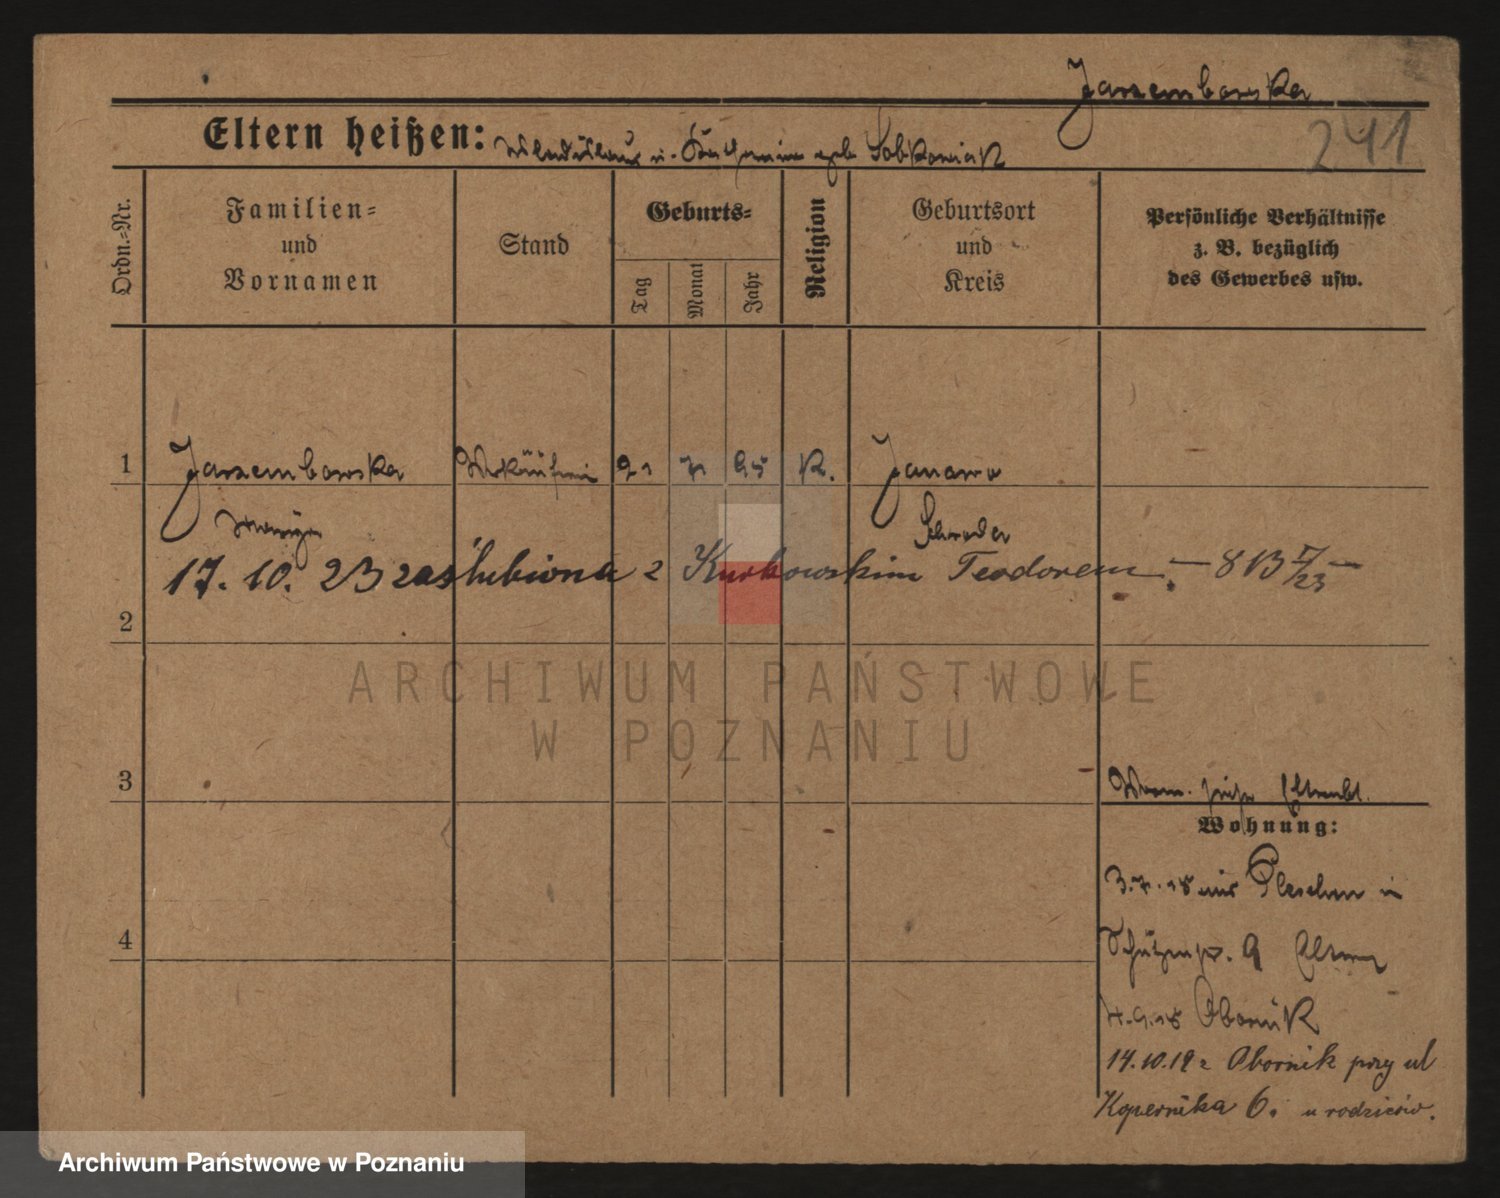 Jarzembowska
241
Eltern heißen: Wladislaus u. geb Sobkowiak
Ordn.-Nr.
Familien-
und
Vornamen
Stand
Geburts-
Tag
Monat
Jahr
Religion
Geburtsort
und
Kreis
Persönliche Verhältnisse
z. B. bezüglich
des Gewerbes usw.
1 Jarzembowska Verkäuferin 21 7 95 K. Janowo
Schroda
17. 10. 23 zaślubiona z Kurkowskim Teodorem. — 813 /23 —
2
3
Wohnung:
3.7.18 aus Pleschen in
4
Schützenstr. 9 Eltern
7.9.18 Obornik
14.10.19 z Obornik przy ul
Kopernika 6. u rodziców.
ARCHIWUM PAŃSTWOWE
W POZNANIU
Archiwum Państwowe w Poznaniu